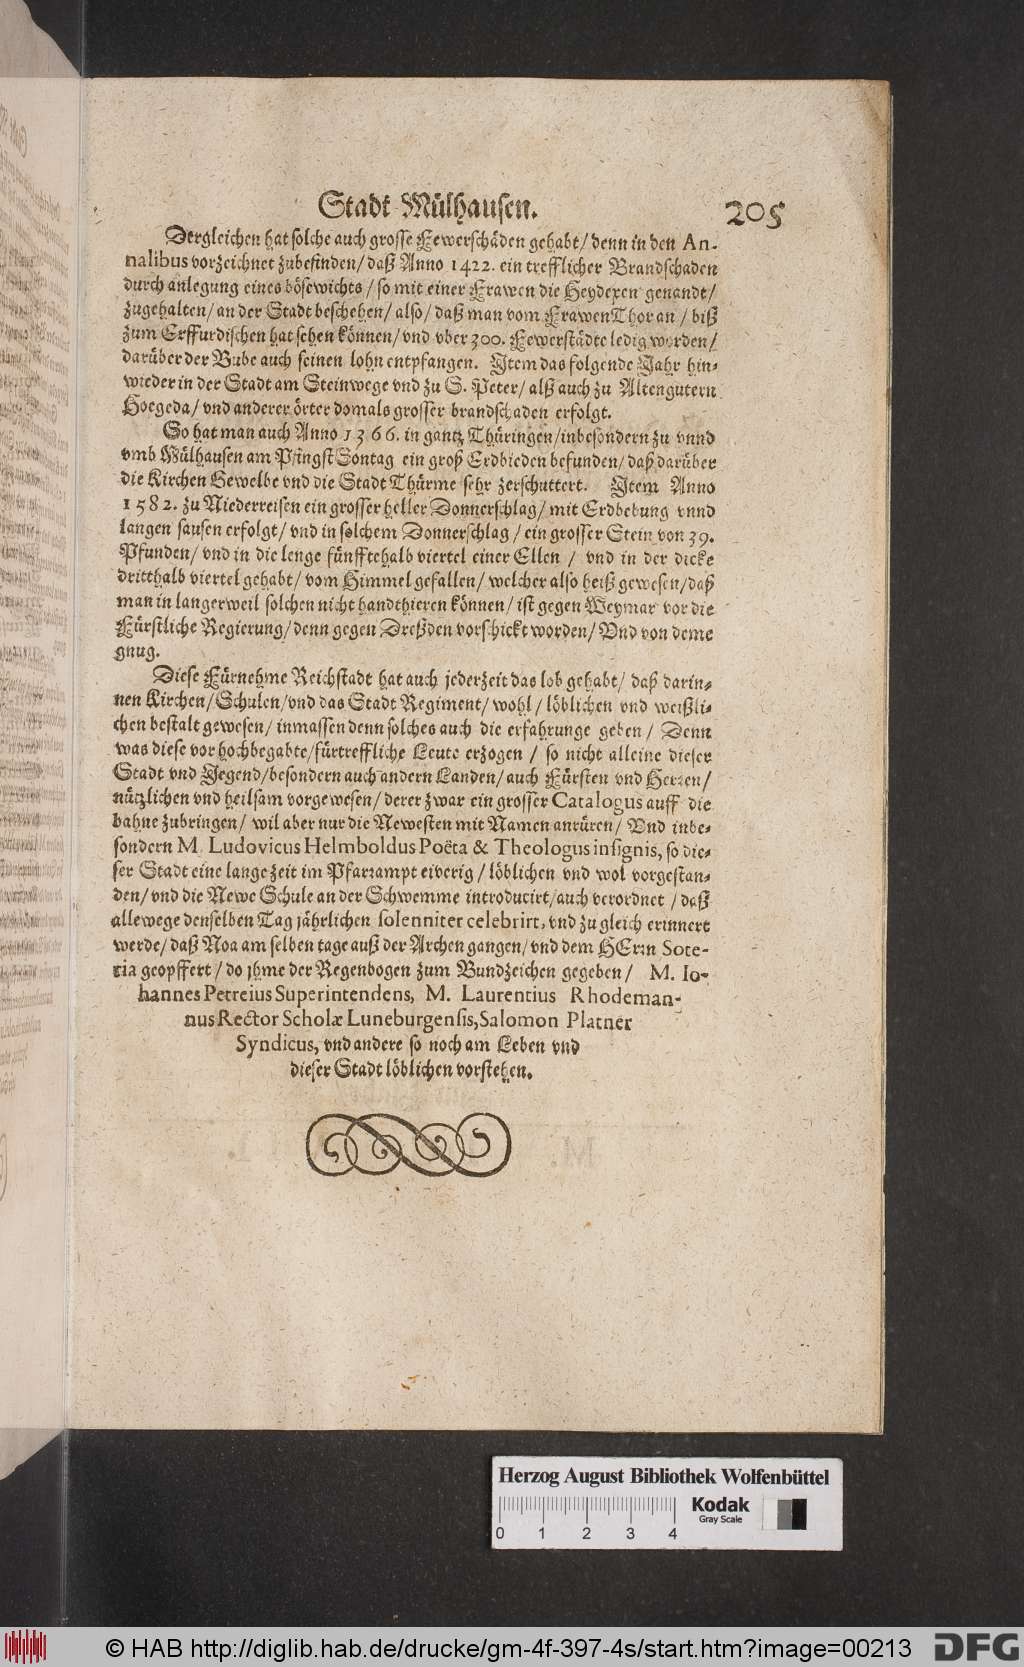 Stadt Mülhausen. 205
Dergleichen hat solche auch grosse Fewerschäden gehabt / denn in den An-
nalibus vorzeichnet zubefinden / daß Anno 1422. ein trefflicher Brandschaden
durch anlegung eines bösewichts / so mit einer Frawen die Heydexen genandt /
zugehalten / an der Stadt beschehen / also / daß man vom Frawen Thor an / biß
zum Erffurdischen hat sehen können / vnd vber 300. Fewerstädte ledig worden /
darüber der Bube auch seinen lohn entpfangen. Item das folgende Jahr hin-
wieder in der Stadt am Steinwege vnd zu S. Peter / alß auch zu Altengutern
Hoegeda / vnd anderer örter domals grosser brandschaden erfolgt.
So hat man auch Anno 1366. in gantz Thüringen / inbesondern zu vnnd
vmb Mülhausen am Pfingst Sontag ein groß Erdbieden befunden / daß darüber
die Kirchen Gewelbe vnd die Stadt Thürme sehr zerschuttert. Item Anno
1582. zu Niederreisen ein grosser heller Donnerschlag / mit Erdbebung vnnd
langen sausen erfolgt / vnd in solchem Donnerschlag / ein grosser Stein von 39.
Pfunden / vnd in die lenge fünfftehalb viertel einer Ellen / vnd in der dicke
dritthalb viertel gehabt / vom Himmel gefallen / welcher also heiß gewesen / daß
man in langerweil solchen nicht handthieren können / ist gegen Weymar vor die
Fürstliche Regierung / denn gegen Dreßden vorschickt worden / Vnd von deme
gnug.
Diese Fürnehme Reichstadt hat auch jederzeit das lob gehabt / daß darin-
nen Kirchen / Schulen / vnd das Stadt Regiment / wohl / löblichen vnd weißli-
chen bestalt gewesen / inmassen denn solches auch die erfahrunge geben / Denn
was diese vor hochbegabte / fürtreffliche Leute erzogen / so nicht alleine dieser
Stadt vnd Jegend / besondern auch andern Landen / auch Fürsten vnd Herren /
nützlichen vnd heilsam vorgewesen / derer zwar ein grosser Catalogus auff die
bahne zubringen / wil aber nur die Newesten mit Namen anrüren / Vnd inbe-
sondern M. Ludovicus Helmboldus Poëta & Theologus insignis, so die-
ser Stadt eine lange zeit im Pfarrampt eiverig / löblichen vnd wol vorgestan-
den / vnd die Newe Schule an der Schwemme introducirt / auch verordnet / daß
allewege denselben Tag jährlichen solenniter celebrirt, vnd zu gleich erinnert
werde / daß Noa am selben tage auß der Archen gangen / vnd dem HErrn Sote-
ria geopffert / do jhme der Regenbogen zum Bundzeichen gegeben / M. Io-
hannes Petreius Superintendens, M. Laurentius Rhodeman-
nus Rector Scholæ Luneburgensis, Salomon Platner
Syndicus, vnd andere so noch am Leben vnd
dieser Stadt löblichen vorstehen.
Herzog August Bibliothek Wolfenbüttel
0 1 2 3 4
Kodak
Gray Scale
© HAB http://diglib.hab.de/drucke/gm-4f-397-4s/start.htm?image=00213
DFG